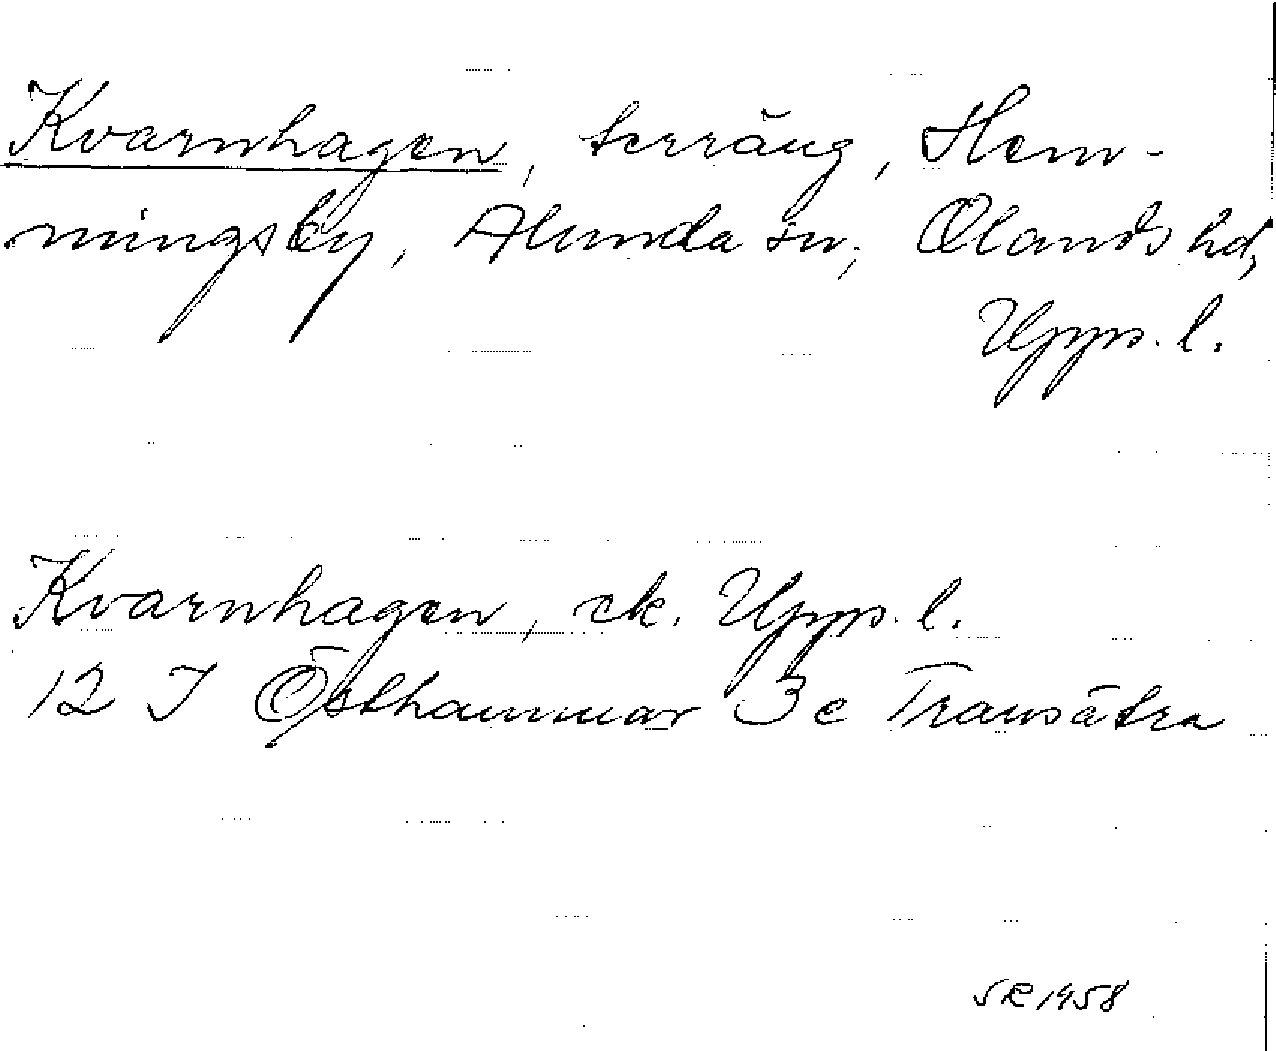 Kvarnhagen, terräng, Hem-
mingsby, Alunda sn, Olands hd,
Upps. l.
Kvarnhagen, ek. Upps. l.
12 I Östhammar 3e Transätra
SR 1958